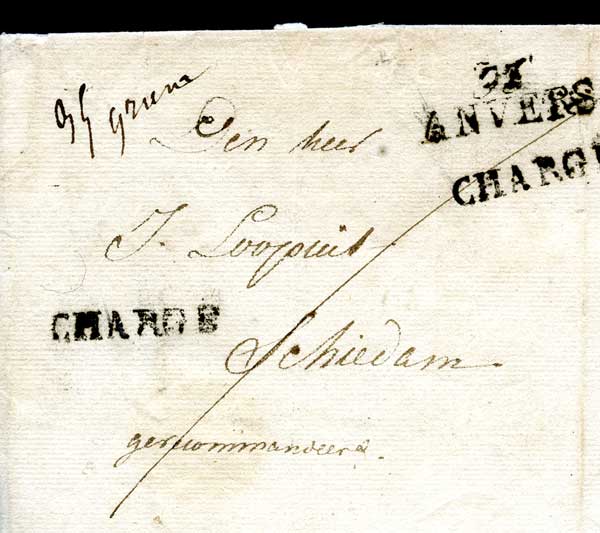 Den heer
J. Loopuit
Schiedam.
gerecommandeerd.
ANVERS
CHARGÉ
CHARGE